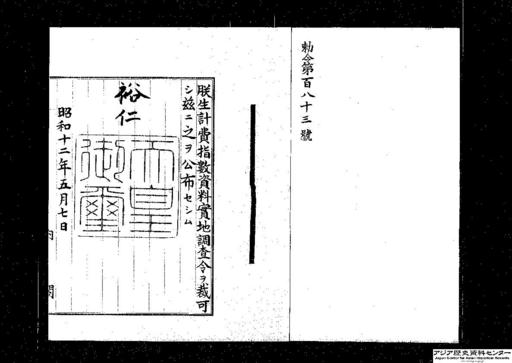 勅令第百八十三號
朕生計費指數資料實地調査令ヲ裁可
シ茲ニ之ヲ公布セシム
裕仁
天皇御璽
昭和十二年五月七日
内閣
アジア歴史資料センター
Japan Center for Asian Historical Records